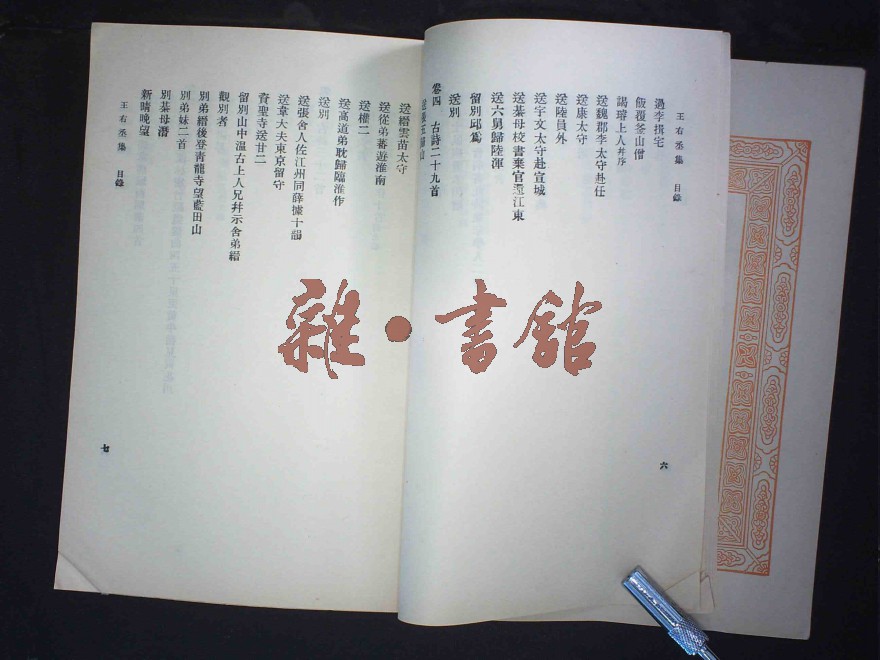 王右丞集　目錄
過李揖宅
飯覆釜山僧
謁璿上人幷序
送魏郡李太守赴任
送康太守
送陸員外
送宇文太守赴宣城
送綦毋校書棄官還江東
送六舅歸陸渾
留別邱爲
送別
卷四　古詩二十九首
歸山
六
送縉雲苗太守
送從弟蕃遊淮南
送權二
送高道弟耽歸臨淮作
送別
送張舍人佐江州同薛據十韻
送韋大夫東京留守
資聖寺送甘二
留別山中溫古上人兄幷示舍弟縉
觀別者
別弟縉後登靑龍寺望藍田山
別弟妹二首
別綦毋潛
新晴晚望
王右丞集　目錄
七
雜·書館